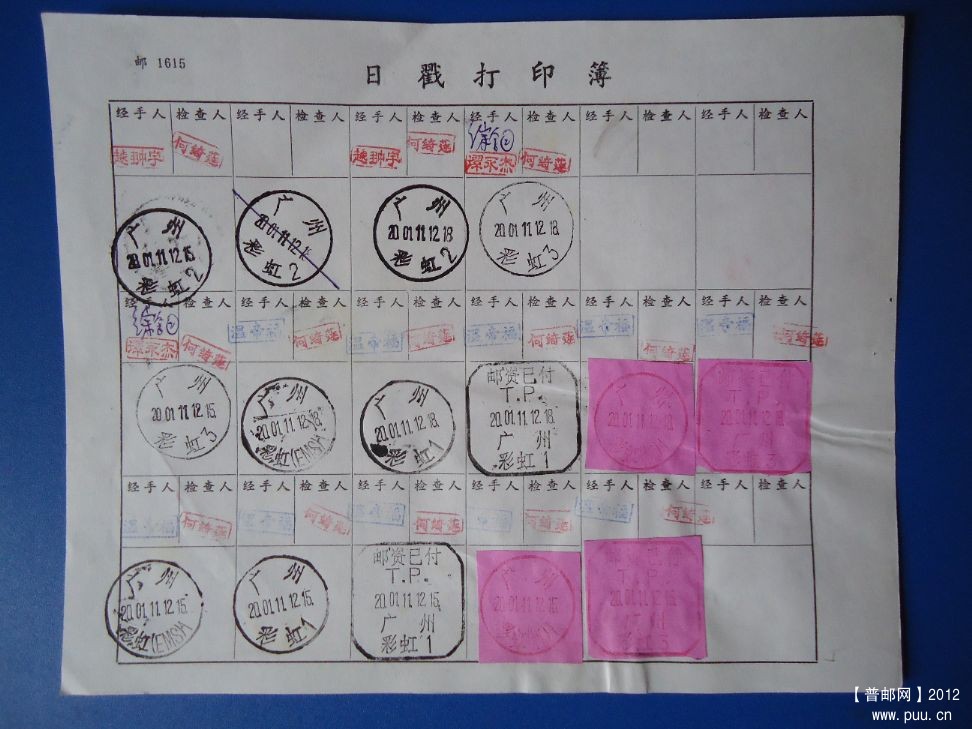 邮 1615
日戳打印簿
经手人 检查人 经手人 检查人 经手人 检查人 经手人 检查人 经手人 检查人 经手人 检查人
何绮莲 何绮莲 何绮莲
广州
20.01.11.12.15.
彩虹2
广州
彩虹2
广州
20.01.11.12.18
彩虹2
广州
20.01.11.12.18.
彩虹3
经手人 检查人 经手人 检查人 经手人 检查人 经手人 检查人 经手人 检查人 经手人 检查人
何绮莲 温帝福 何绮莲 温帝福 何绮莲 温帝福 何绮莲 温帝福 何绮莲 温帝福 何绮莲
广州
20.01.11.12.15.
彩虹3
广州
20.01.11.12.18.
彩虹(EMS)1
广州
20.01.11.12.18.
彩虹1
邮资已付
T.P.
20.01.11.12.18.
广州
彩虹1
邮资已付
T.P.
20.01.11.12.18.
彩虹3
经手人 检查人 经手人 检查人 经手人 检查人 经手人 检查人 经手人 检查人 经手人 检查人
温帝福 何绮莲 温帝福 何绮莲 温帝福 何绮莲 何绮莲 温帝福 何绮莲
广州
20.01.11.12.15.
彩虹(EMS)1
广州
20.01.11.12.15.
彩虹1
邮资已付
T.P.
20.01.11.12.15.
广州
彩虹1
广州
20.01.11.12.15.
邮资已付
T.P.
20.01.11.12.15.
广州
彩虹3
【普邮网】2012
www.puu.cn